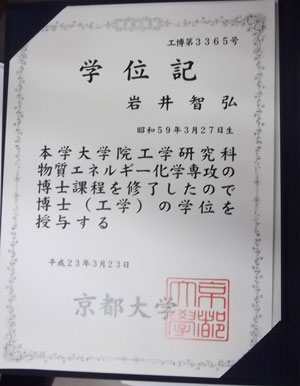 工博第3365号
学位記
岩井智弘
昭和59年3月27日生
本学大学院工学研究科
物質エネルギー化学専攻の
博士課程を修了したので
博士(工学)の学位を
授与する
平成23年3月23日
京都大学
京都大學